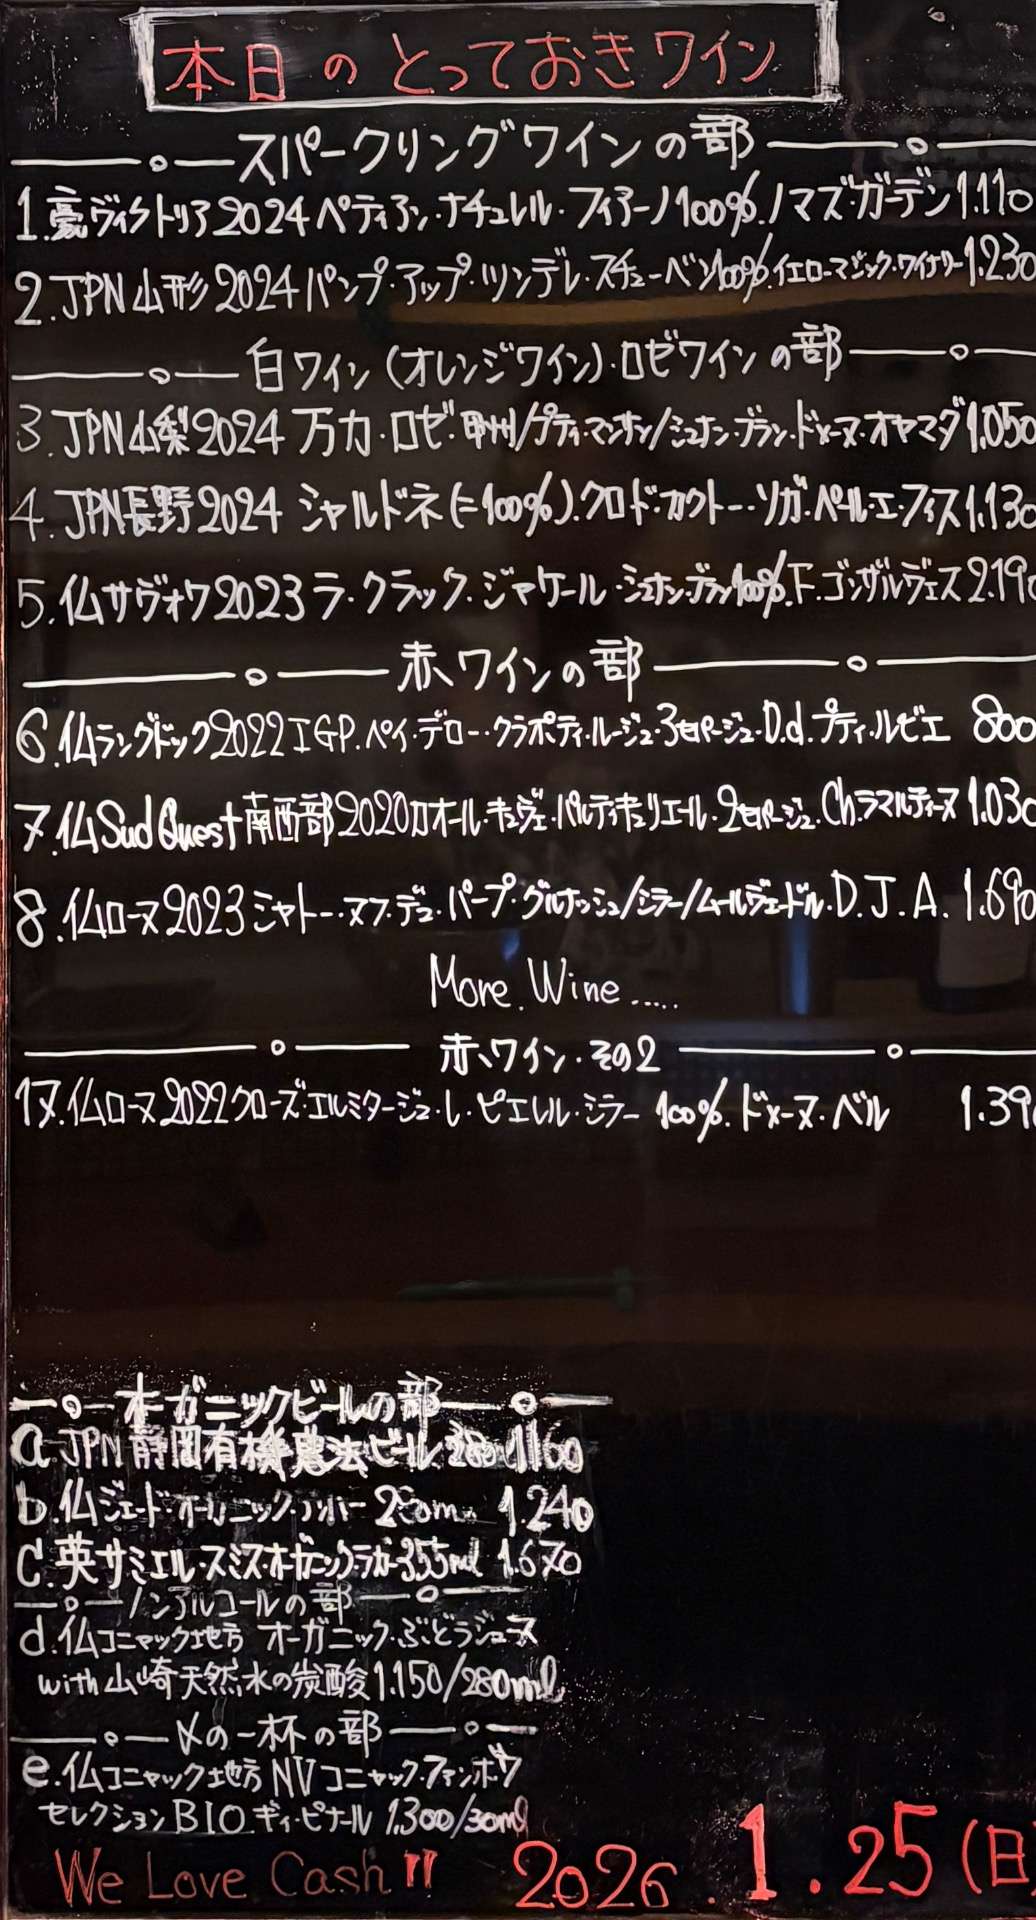 本日のとっておきワイン
スパークリングワインの部
1.豪ヴィクトリア2024ペティアン・ナチュレル・フィアーノ100%.ノマズ・ガーデン1.110
2.JPN山形2024パンプ・アップ・ツンデレ・スチューベン100%.イエローマジック・ワイナリー1.230
白ワイン(オレンジワイン)・ロゼワインの部
3.JPN山梨2024万力・ロゼ・甲州/プティ・マンサン/シュナン・ブラン・ドメーヌ・オヤマダ1.050
4.JPN長野2024シャルドネ(=100%).クロド・カクトー・ソガ・ペール・エ・フィス1.130
5.仏サヴォワ2023ラ・クラック・ジャケール・シュナン・ブラン100%.F.ゴンザルヴェス2.19
赤ワインの部
6.仏ラングドック2022IGP.ペイ・デロー・クラポティ・ルージュ・3セパージュ・D.d.プティ・ルビエ 800
7.仏Sud Ouest南西部2020カオール・キュヴェ・パルティキュリエール・2セパージュ.Ch.ラマルティーヌ1.030
8.仏ローヌ2023シャトー・ヌフ・デュ・パープ・グルナッシュ/シラー/ムールヴェードル.D.J.A.1.690
More.Wine.....
赤ワイン・その2
17.仏ローヌ2022クローズ・エルミタージュ・レ・ピエレル・シラー 100%.ドメーヌ・ベル 1.39
オーガニックビールの部
a.JPN静岡有機農法ビール 1160
b.仏ジェード・オーガニック・アンバー 250ml 1.240
c.英サミエル・スミス・オーガニックラガー355ml 1.670
ノンアルコールの部
d.仏コニャック地方 オーガニック・ぶどうジュース
with山崎天然水の炭酸1.150/280ml
〆の一杯の部
e.仏コニャック地方NVコニャック・ファンボワ
セレクションBIOギィ・ピナール 1.300/30ml
We Love Cash!! 2026.1.25(日